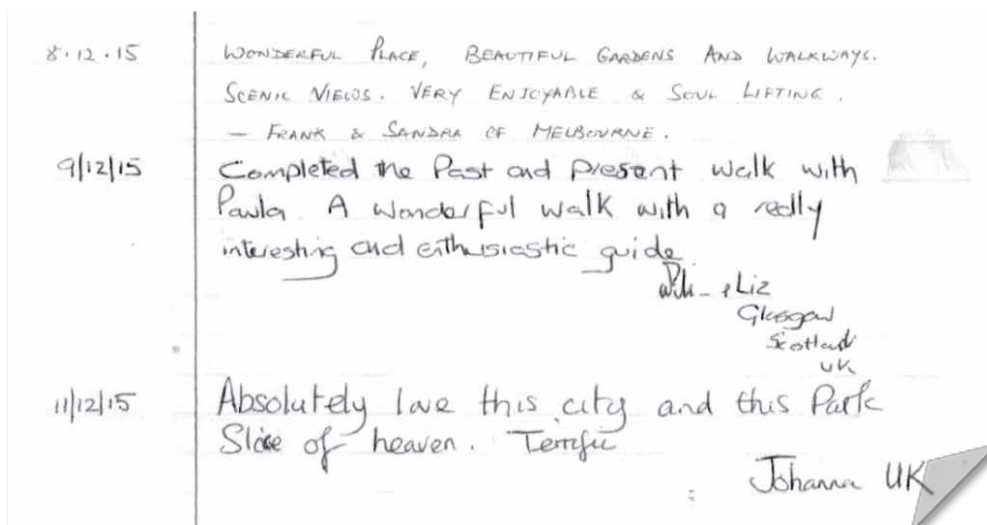 8.12.15 WONDERFUL PLACE, BEAUTIFUL GARDENS AND WALKWAYS.
SCENIC VIEWS. VERY ENJOYABLE & SOUL LIFTING.
— FRANK & SANDRA OF MELBOURNE.
9/12/15 Completed the Past and present walk with
Paula. A wonderful walk with a really
interesting and enthusiastic guide
& Liz
Glasgow
Scotland
UK
11/12/15 Absolutely love this city and this Park
Slice of heaven. Terrific
Johanna UK